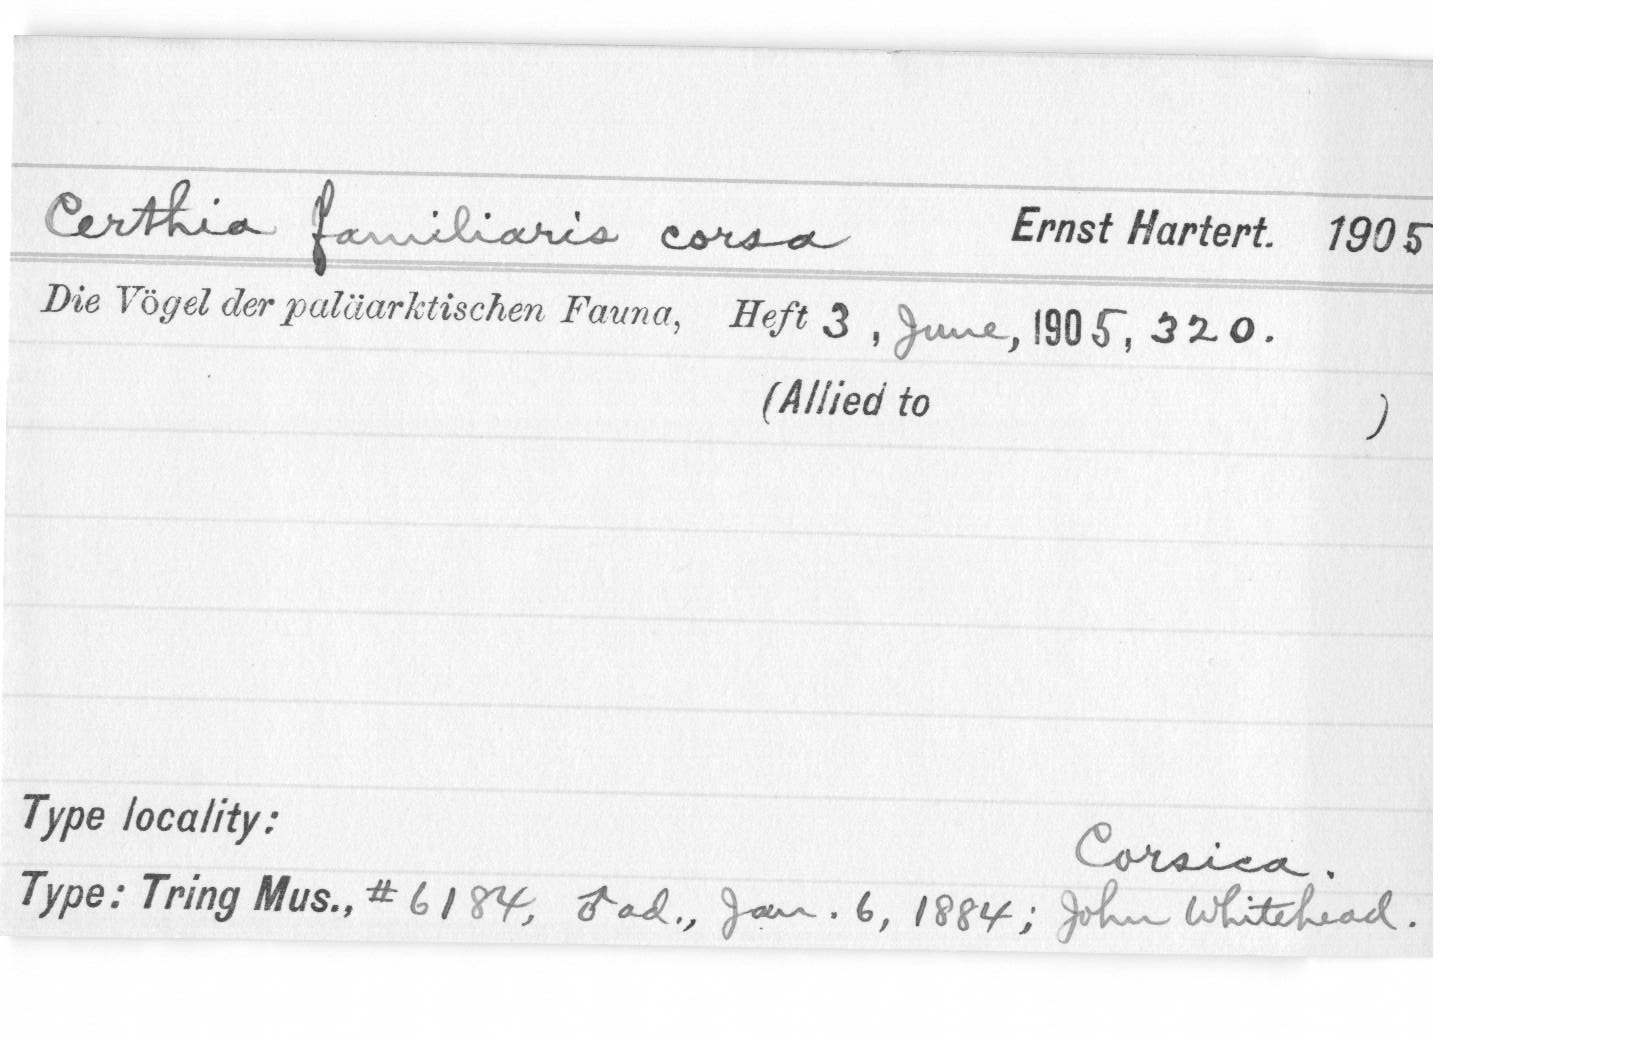 Certhia familiaris corsa Ernst Hartert. 1905
Die Vögel der paläarktischen Fauna, Heft 3, June, 1905, 320.
(Allied to )
Type locality:
Corsica.
Type: Tring Mus., # 6184, ♂ ad., Jan. 6, 1884; John Whitehead.